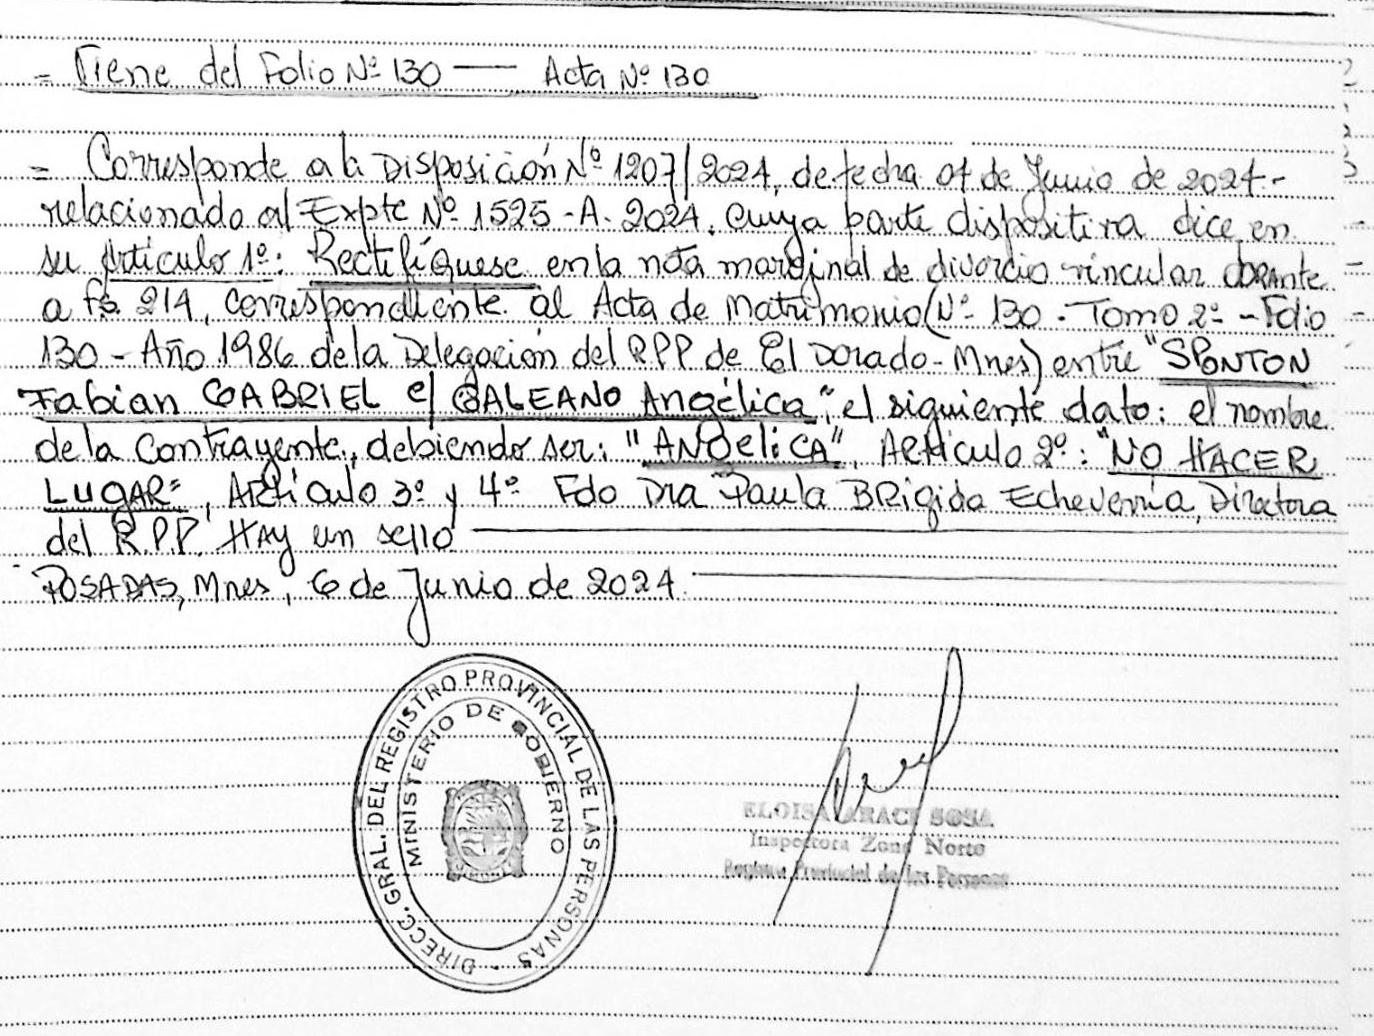 = Viene del Folio Nº 130 —— Acta Nº 130
= Corresponde a la Disposición Nº 1207/2024, de fecha 04 de Junio de 2024.-
relacionado al Expte Nº 1525-A-2024, cuya parte dispositiva dice en
su Artículo 1º: Rectifíquese en la nota marginal de divorcio vincular obrante
a fs. 214, correspondiente al Acta de Matrimonio (Nº 130 - Tomo 2º - Folio
130 - Año 1986 de la Delegación del RPP de El Dorado - Mnes) entre "SPONTON
Fabian GABRIEL c/ GALEANO Angélica", el siguiente dato: el nombre
de la Contrayente, debiendo ser: "ANGeliCA", Artículo 2º: "NO HACER
LUGAR", Artículo 3º y 4º Fdo Dra Paula BRigida Echeverria, Directora
del R.P.P. HAy un sello
POSADAS, Mnes, 6 de Junio de 2024.
DIRECC. GRAL. DEL REGISTRO PROVINCIAL DE LAS PERSONAS
MINISTERIO DE GOBIERNO
ELOISA ARACI SOSA
Inspectora Zona Norte
Registro Provincial de las Personas